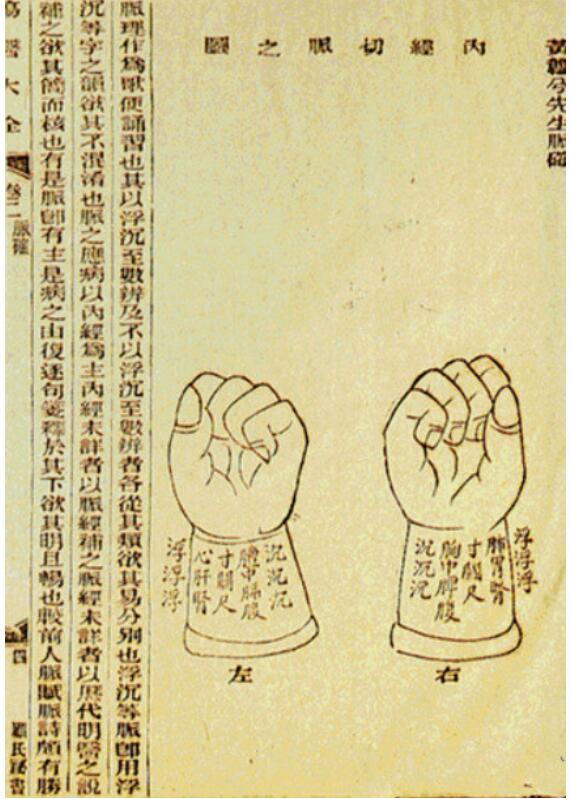 黃韞兮先生脈確
內經切脈之圖
浮浮浮
肺胃腎
寸關尺
胸中脾腹
沉沉沉
右
沉沉沉
膻中膈腹
寸關尺
心肝腎
浮浮浮
左
脈理作爲賦便誦習也其以浮沉至數辨及不以浮沉至數辨者各從其類欲其易分別也浮沉等脈卽用浮
沉等字之韻欲其不混淆也脈之應病以內經爲主內經未詳者以脈經補之脈經未詳者以歷代明醫之說
補之欲其簡而核也有是脈卽有主是病之由復逐句箋釋於其下欲其明且暢也前人脈賦脈詩頗有勝
醫大全 卷二 脈確 四 氏秘書